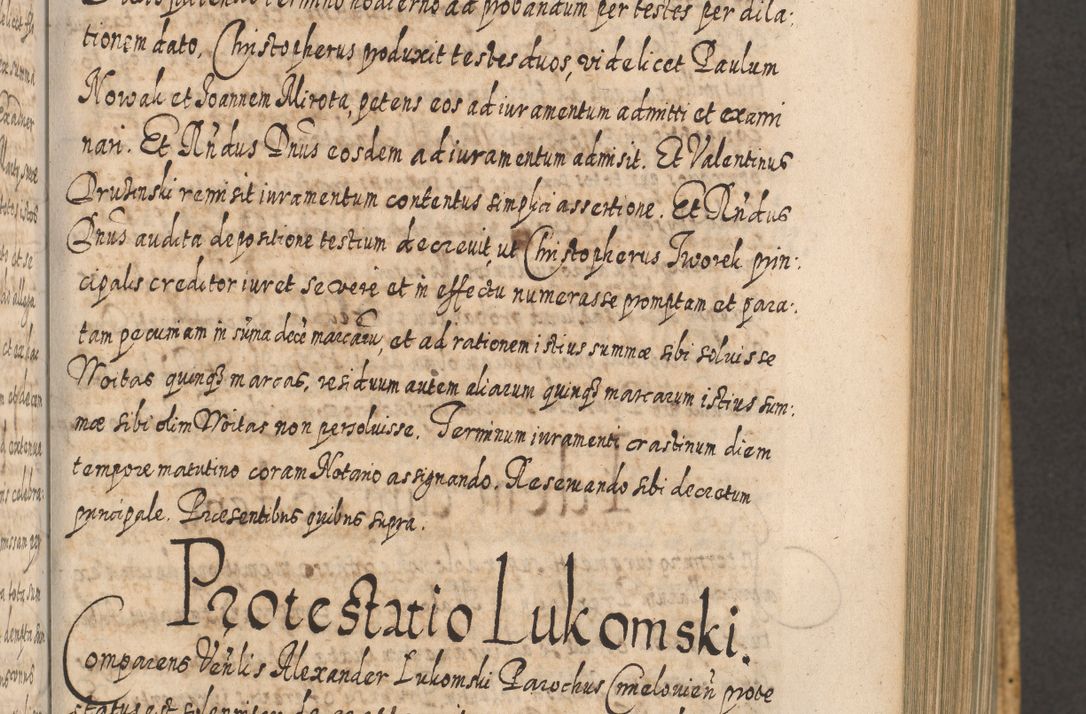 termino hodierno ad probandum per testes per dila:
tionem dato, Christopherus produxit testes duos, videlicet Paulum
Nowak et Joannem Mirota, petens eos ad iuramentum admitti et exami
nari. Et Rndus Dnus eosdem ad iuramentum admisit. Et Valentinus
Pruśinski remisit iuramentum contentus simplici assertione. Et Rndus
Dnus audita depositione testium decrevit, ut Christopherus Tworek prin:
cipalis creditor iuret se vere et in effectu numerasse promptam et para:
tam pecuniam in suma dece marcaru, et ad rationem istius summæ sibi soluisse
Woitas quinq3 marcas, residuum autem aliarum quinq3 marcarum istius sum:
mæ sibi olim Woitas non persoluisse. Terminum iuramenti crastinum diem
tempore matutino coram Notario assignando. Reseruando sibi decretum
principale. Præsentibus quibus supra.
Protestatio Lukomski.
Comparens Venlis Alexander Lukomski Parochus Cmielovien prote
status est solenniter